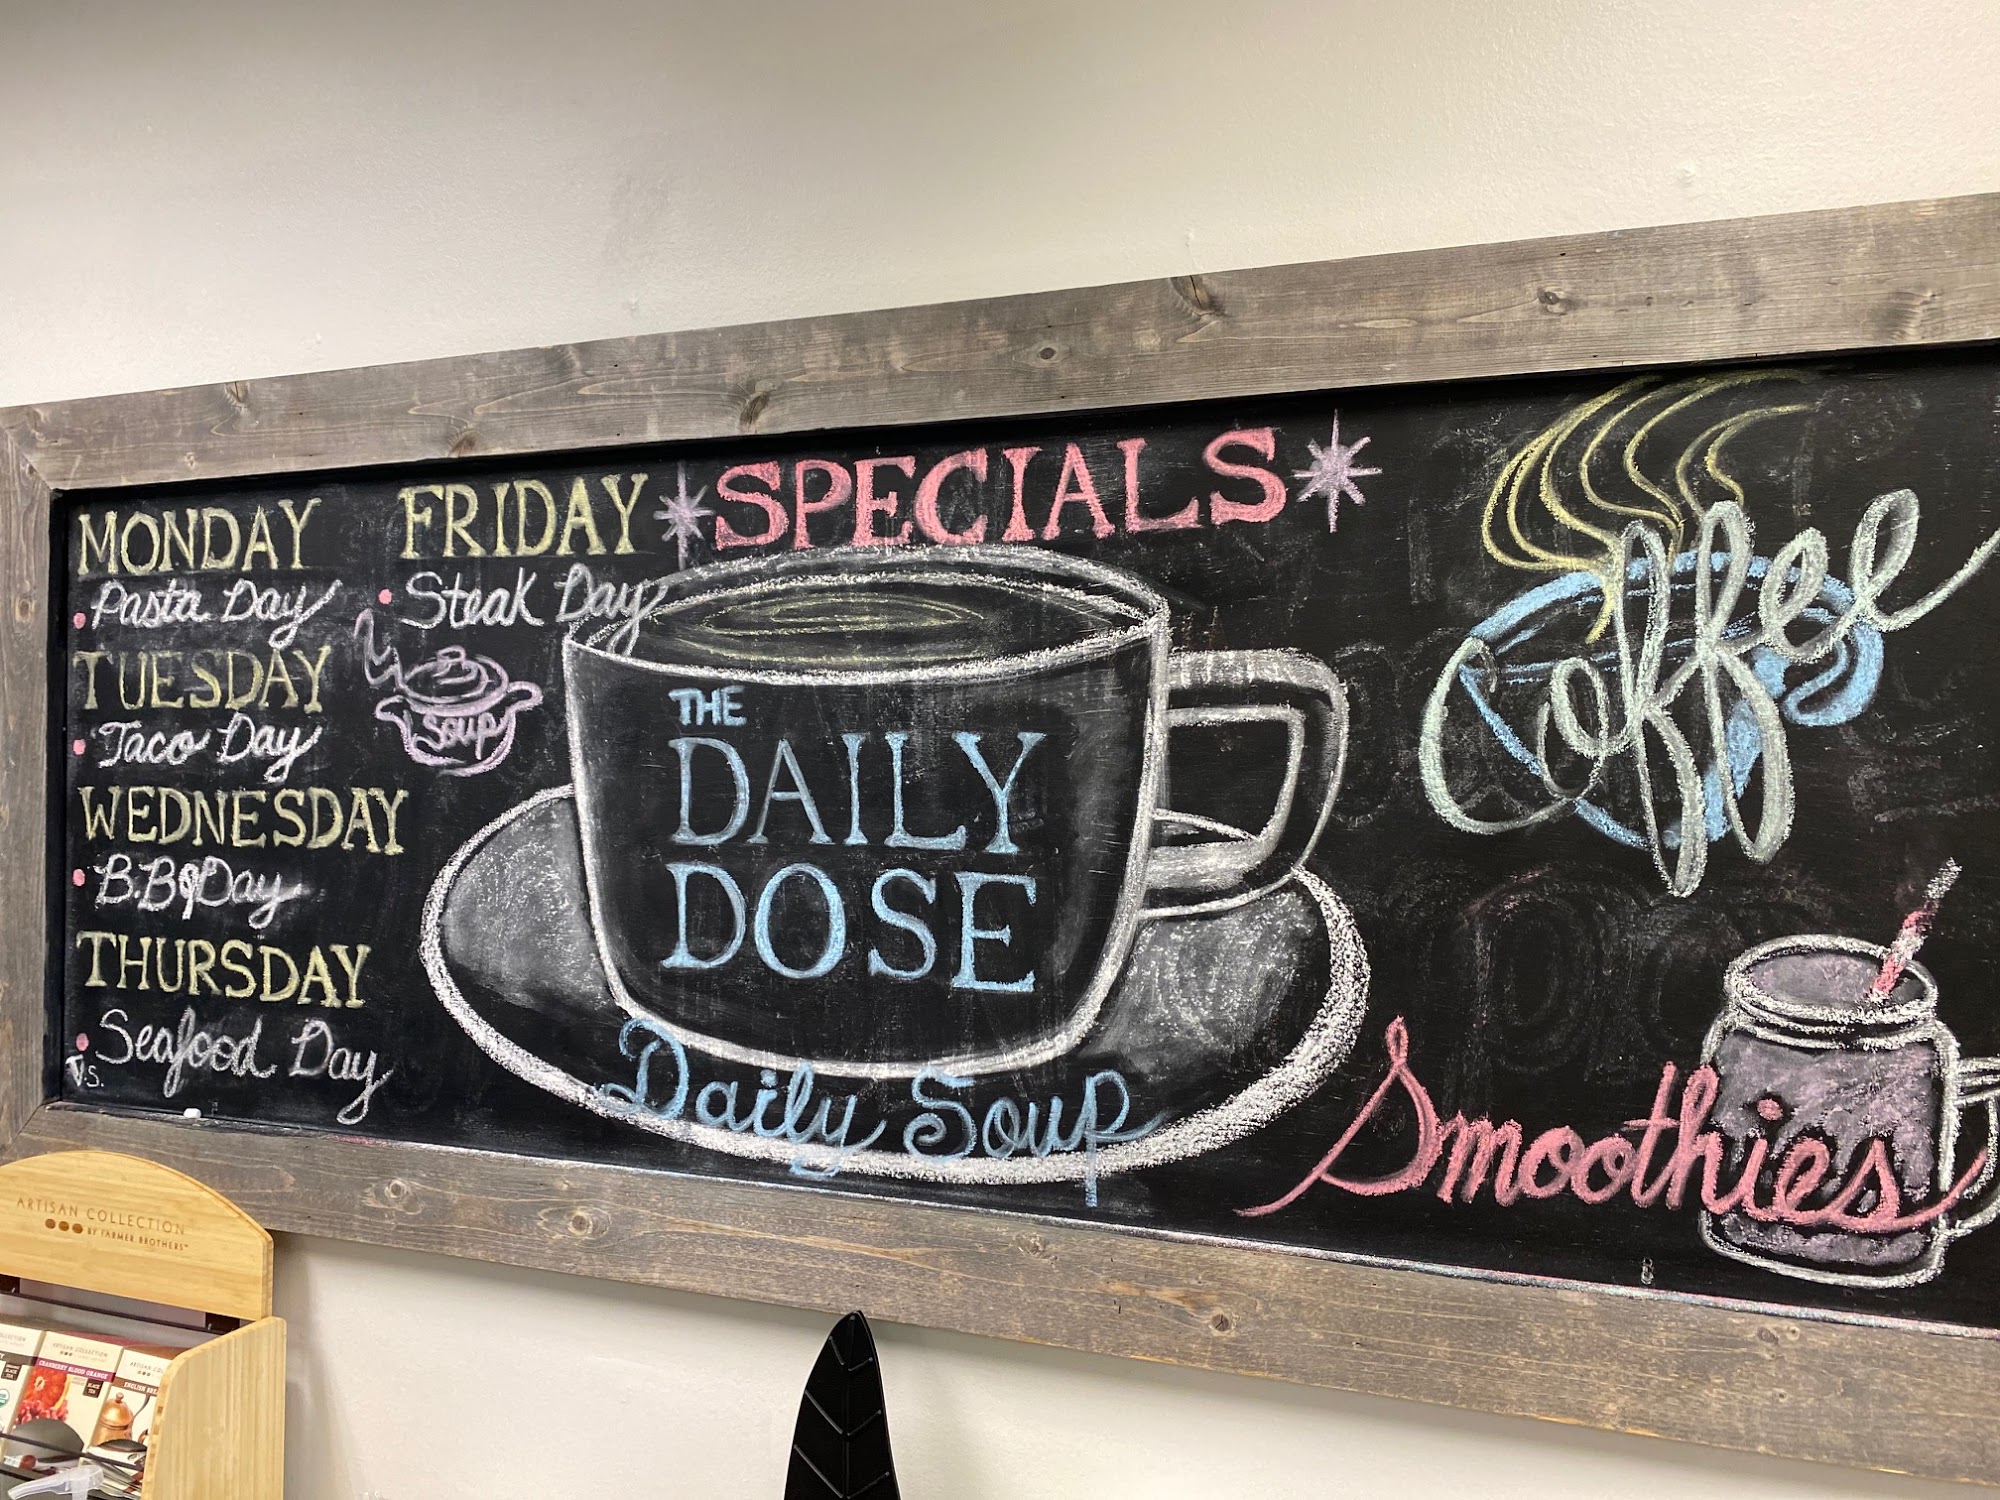 MONDAY
Pasta Day
TUESDAY
Taco Day
WEDNESDAY
B.BQ Day
THURSDAY
Seafood Day
V.S.
FRIDAY
Steak Day
Soup
SPECIALS
THE
DAILY
DOSE
Daily Soup
Coffee
Smoothies
ARTISAN COLLECTION
BY FARMER BROTHERS™
ARTISAN COLLECTION
CRANBERRY BLOOD ORANGE
BLACK TEA